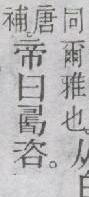 同爾雅也。从
唐帝曰咨。
補